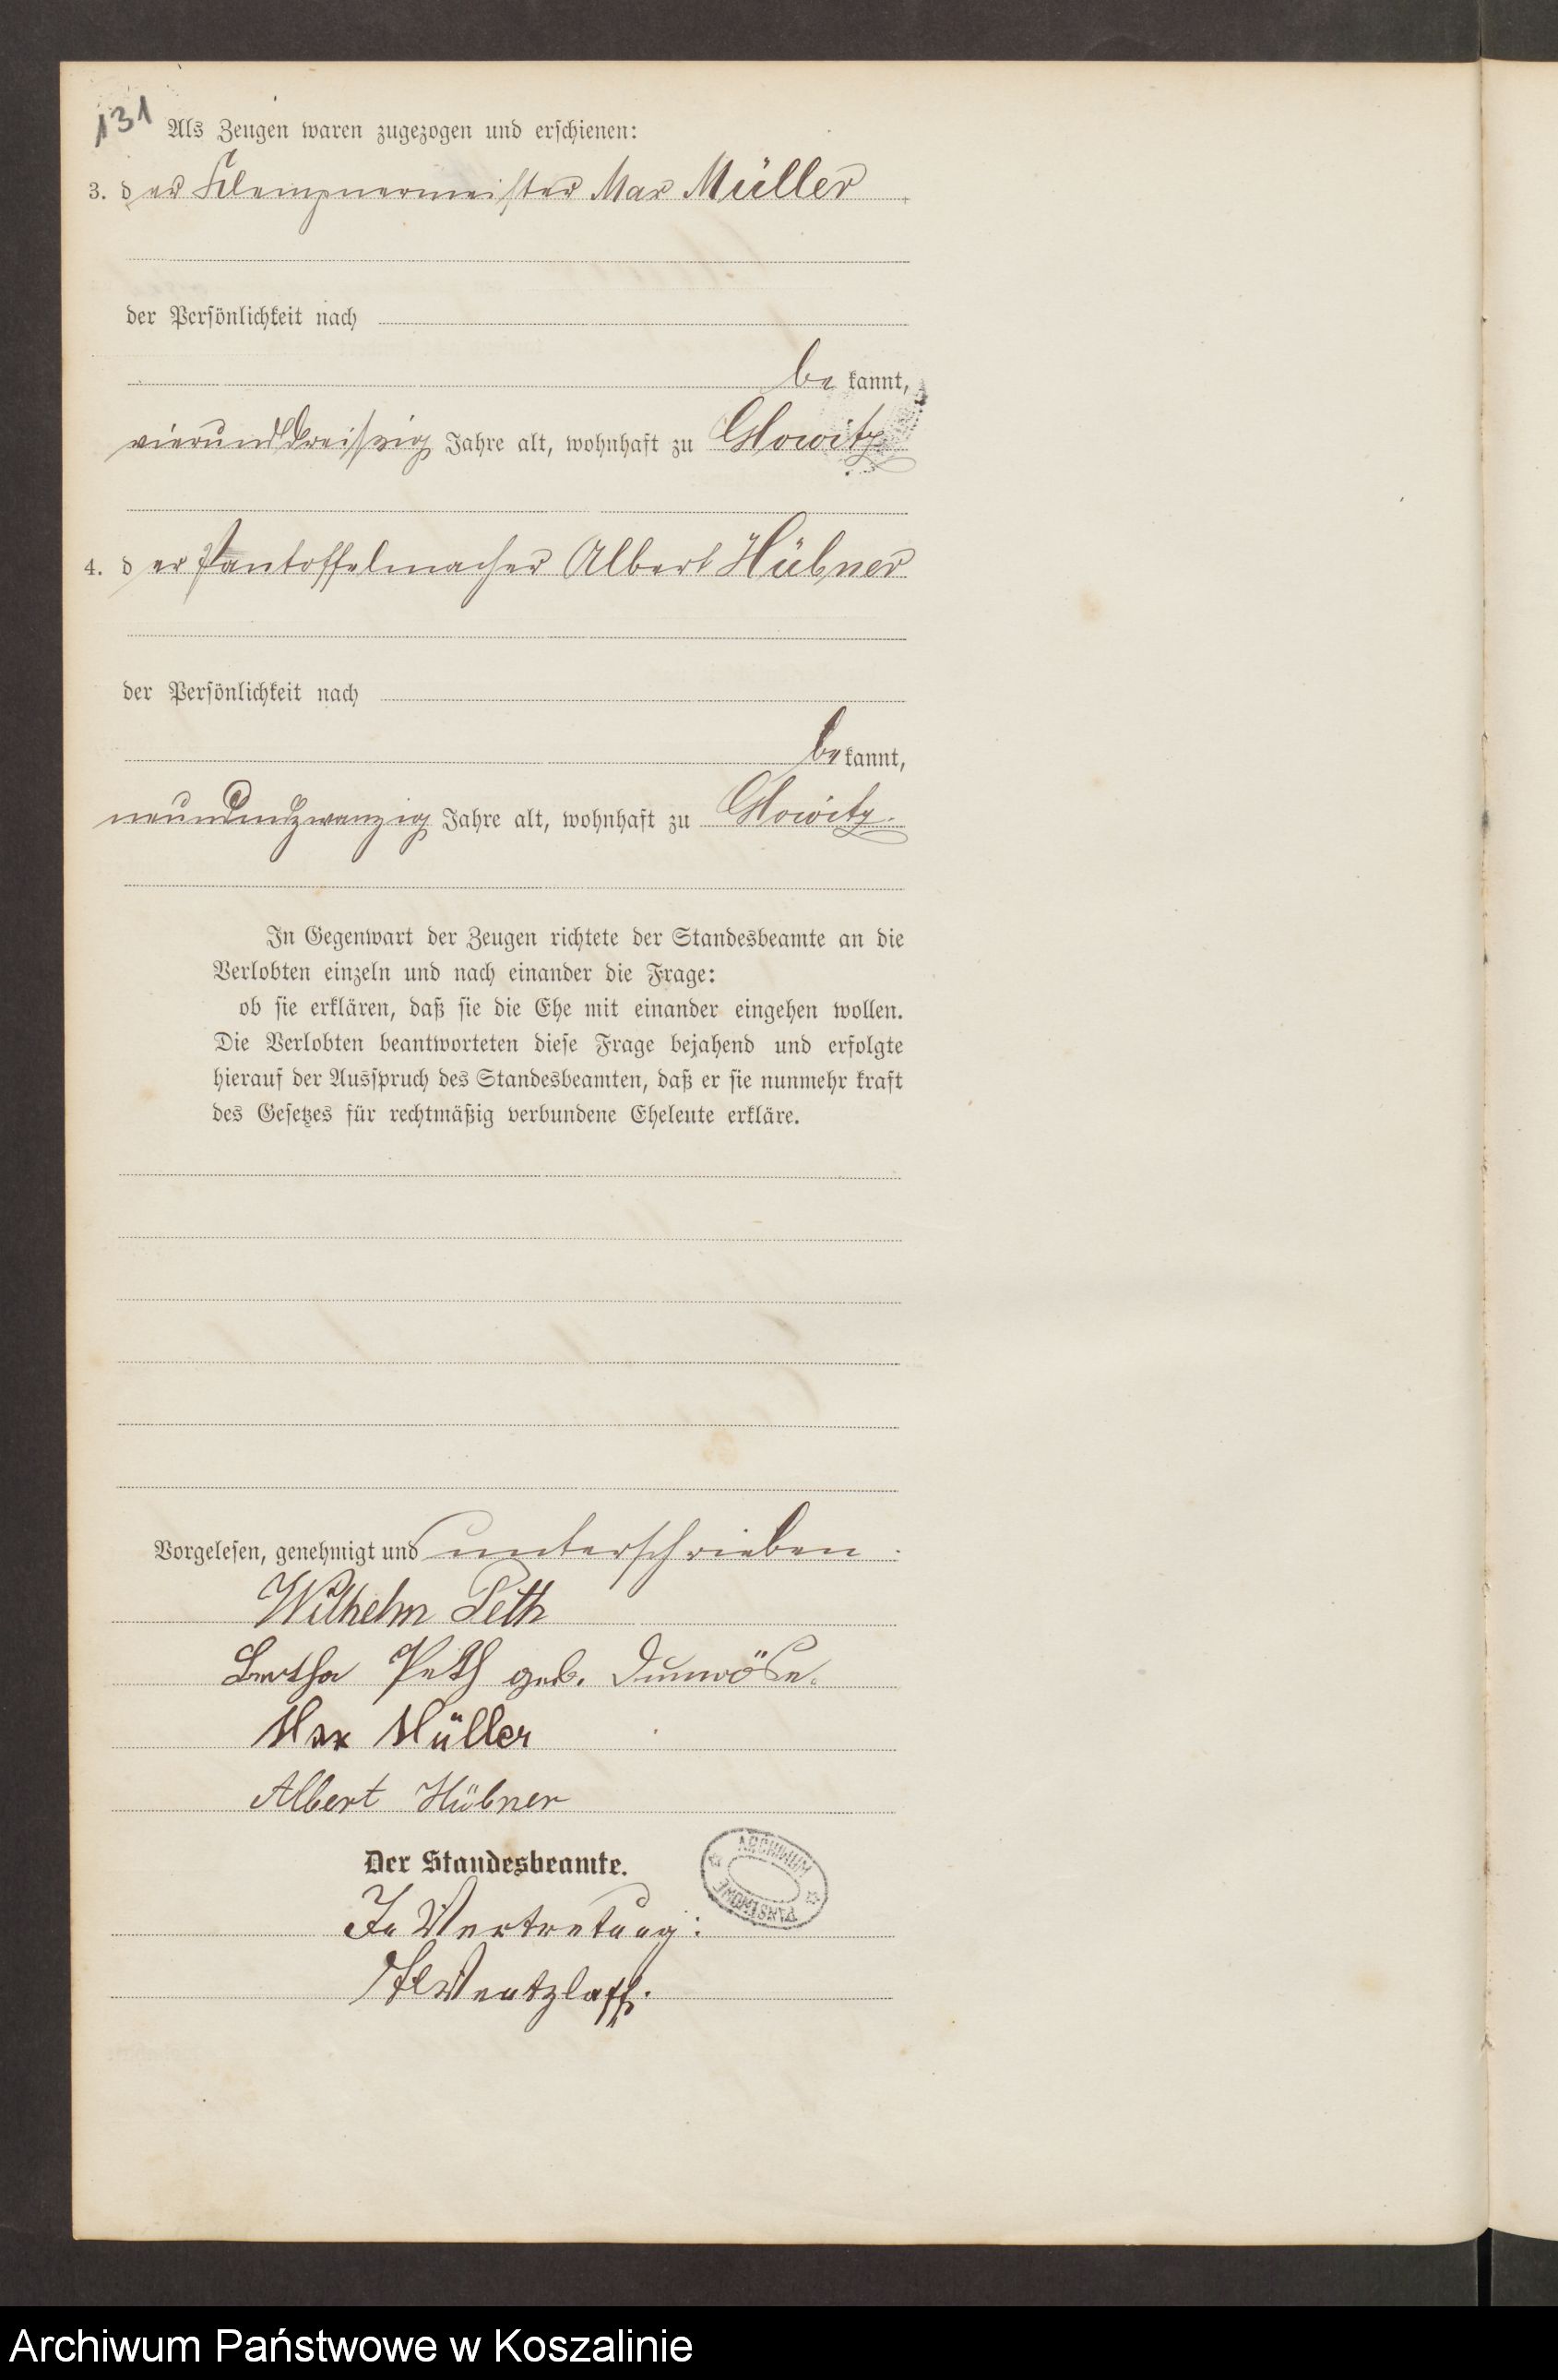 131
Als Zeugen waren zugezogen und erschienen:
3. der Klempnermeister Max Müller
der Persönlichkeit nach
be kannt,
vierunddreiszig Jahre alt, wohnhaft zu Glowitz
4. d er Pantoffelmacher Albert Hübner
der Persönlichkeit nach
be kannt,
neunundzwanzig Jahre alt, wohnhaft zu Glowitz.
In Gegenwart der Zeugen richtete der Standesbeamte an die
Verlobten einzeln und nach einander die Frage:
ob sie erklären, daß sie die Ehe mit einander eingehen wollen.
Die Verlobten beantworteten diese Frage bejahend und erfolgte
hierauf der Ausspruch des Standesbeamten, daß er sie nunmehr kraft
des Gesetzes für rechtmäßig verbundene Eheleute erkläre.
Vorgelesen, genehmigt und unterschrieben.
Wilhelm Peth
Bertha Peth geb.
Max Müller
Albert Hübner
Der Standesbeamte.
ARCHIWUM PAŃSTWOWE
In Vertretung:
Wentzlaff.
Archiwum Państwowe w Koszalinie